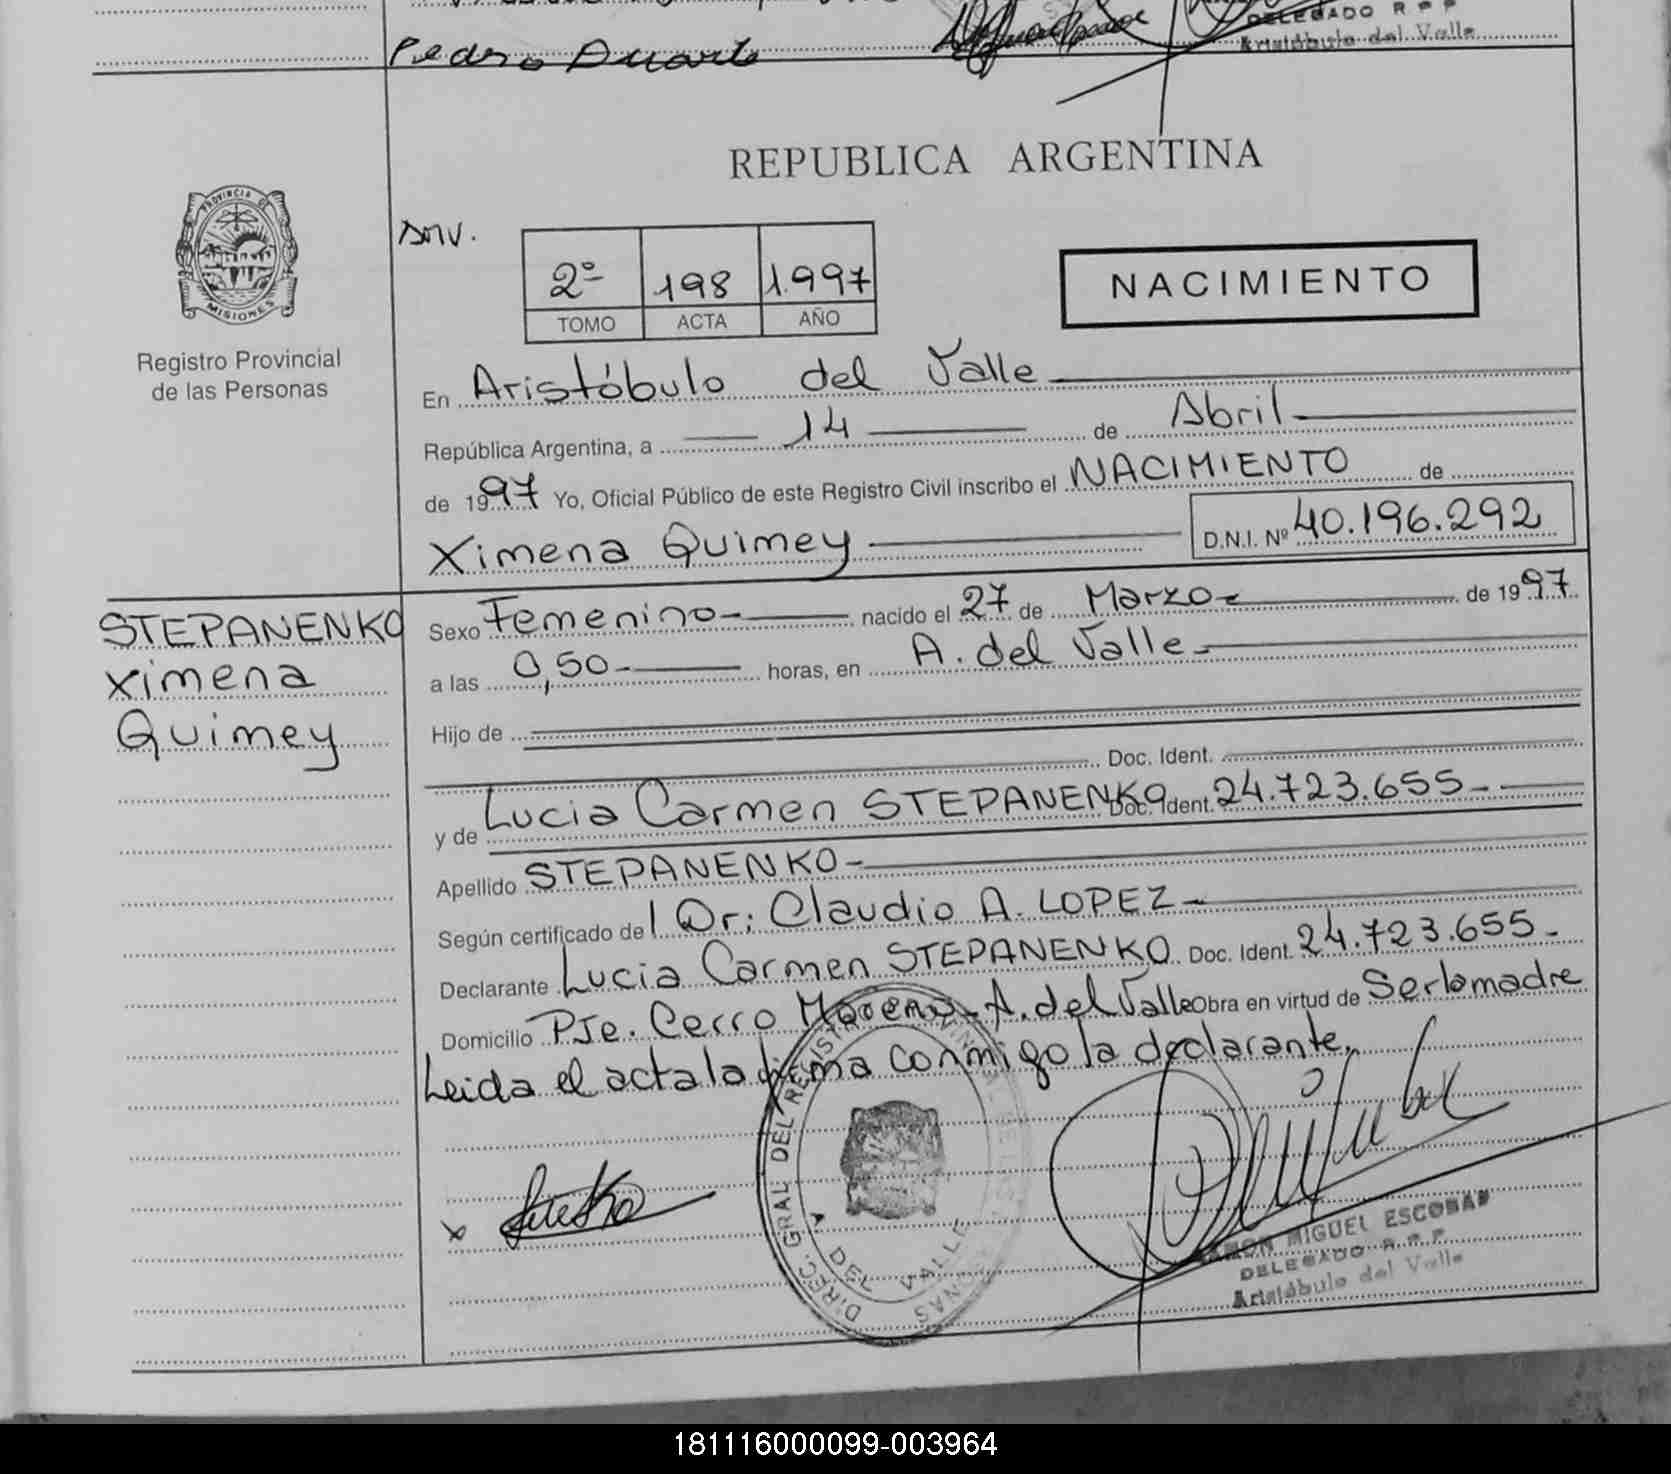 Pedro Duarte
DELEGADO R P P
Aristóbulo del Valle
REPUBLICA ARGENTINA
PROVINCIA DE
MISIONES
Registro Provincial
de las Personas
2º 198 1.997
TOMO ACTA AÑO
NACIMIENTO
En Aristóbulo del Valle
República Argentina, a 14 de Abril
de 1997 Yo, Oficial Público de este Registro Civil inscribo el NACIMIENTO de
Ximena Quimey D.N.I. Nº 40.196.292
STEPANENKO
Ximena
Quimey
Sexo Femenino- nacido el 27 de Marzo- de 1997
a las 0,50- horas, en A. del Valle-
Hijo de
Doc. Ident.
y de Lucia Carmen STEPANENKO Doc. Ident. 24.723.655-
Apellido STEPANENKO-
Según certificado de l Dr: Claudio A. LOPEZ-
Declarante Lucia Carmen STEPANENKO Doc. Ident. 24.723.655-
Domicilio PJe. Cerro Moreno- A. del Valle Obra en virtud de Ser la madre
Leida el acta la firma conmigo la declarante.
x
DIREC. GRAL DEL REGISTRO
A DEL VALLE
RAMON MIGUEL ESCOBAR
DELEGADO R.P.P.
Aristóbulo del Valle
181116000099-003964